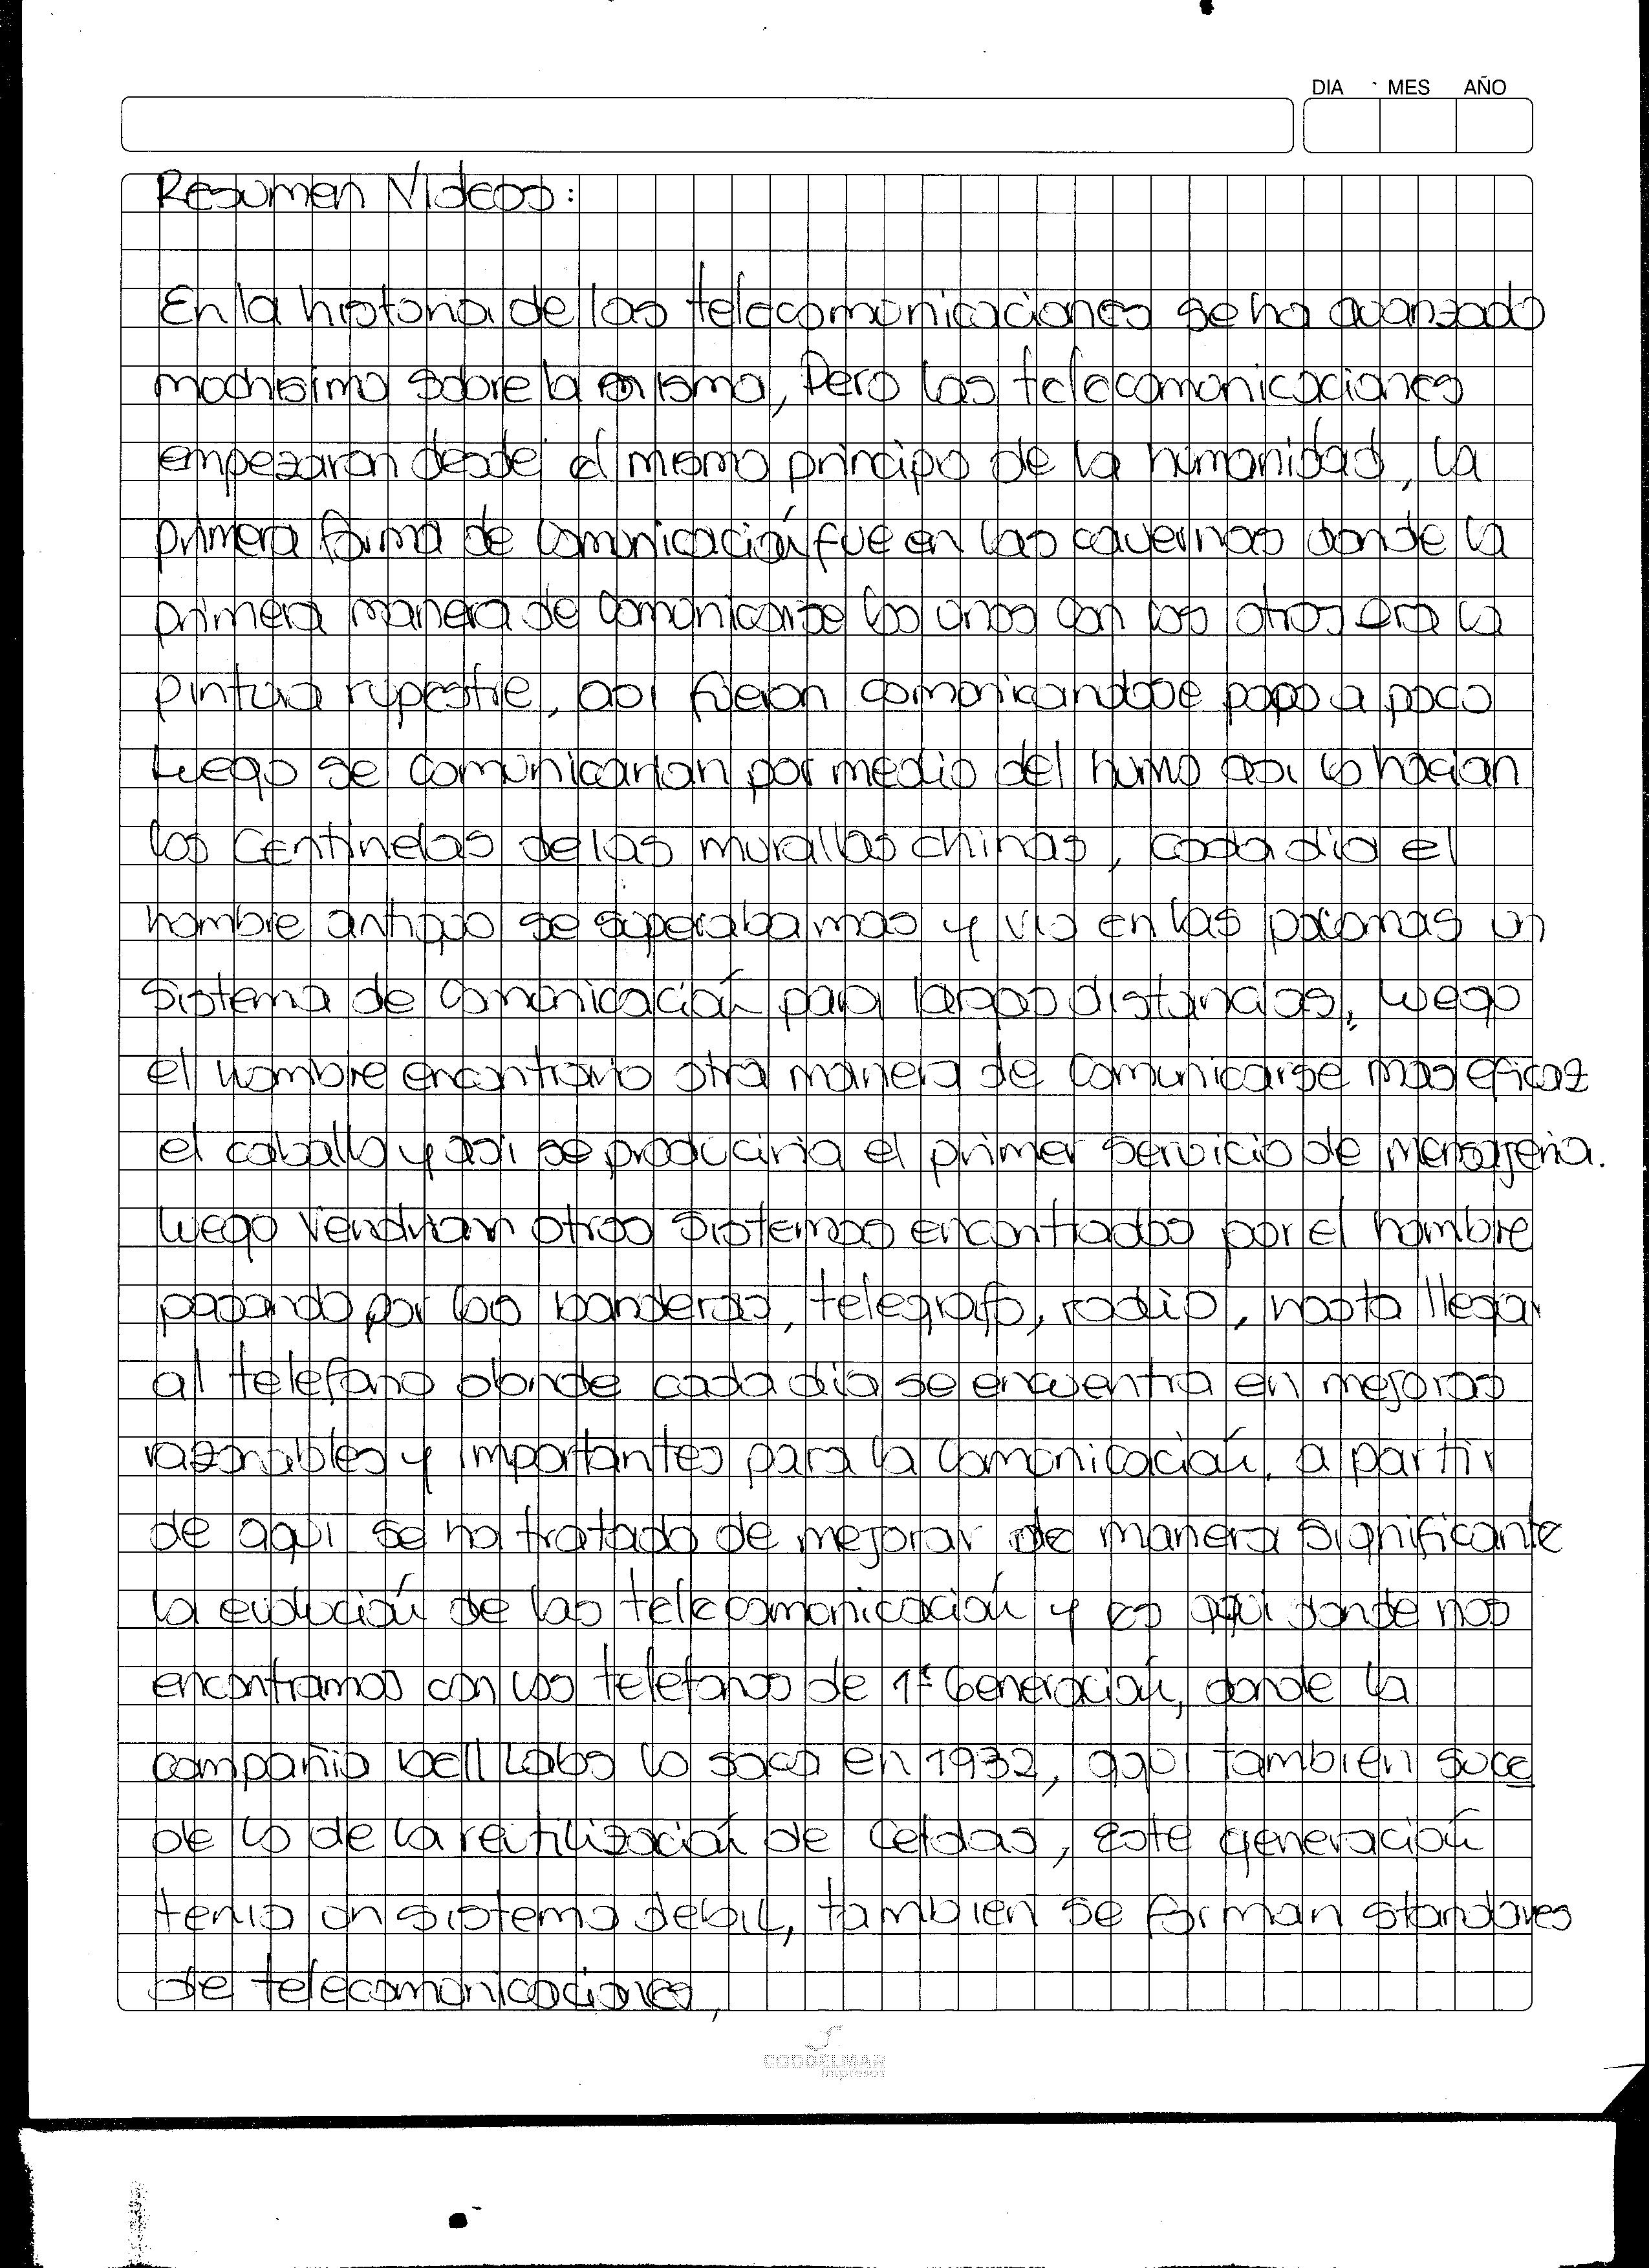 DIA MES AÑO
Resumen Videos:
En la historia de las telecomunicaciones se ha avanzado
muchisimo sobre la misma, Pero las telecomunicaciones
empezaron desde el mismo principio de la humanidad, la
primera forma de comunicación fue en las cavernas donde la
primera manera de comunicarse los unos con los otros era la
pintura rupestre, asi fueron comunicandose poco a poco
Luego se comunicarian por medio del humo asi lo hacian
los Centinelas de las murallas chinas, cada dia el
hombre antiguo se superaba mas y vio en las palomas un
sistema de comunicación para largas distancias, luego
el hombre encontrario otra manera de comunicarse mas eficaz
el caballo y asi se produciria el primer servicio de mensajeria.
Luego vendrian otros sistemas encontrados por el hombre
pasando por las banderas, telegrafo, radio, hasta llegar
al telefono donde cada dia se encuentra en mejoras
razonables y importantes para la comunicación, a partir
de aqui se ha tratado de mejorar de manera significante
la evolución de las telecomunicación y es aqui donde nos
encontramos con los telefonos de 1ª Generación, donde la
compañia bell Labs lo saco en 1932, aqui tambien suce
de lo de la reutilización de celdas, este generación
tenia un sistema debil, tambien se forman standares
de telecomunicaciones,
CODDELMAN
Impresos